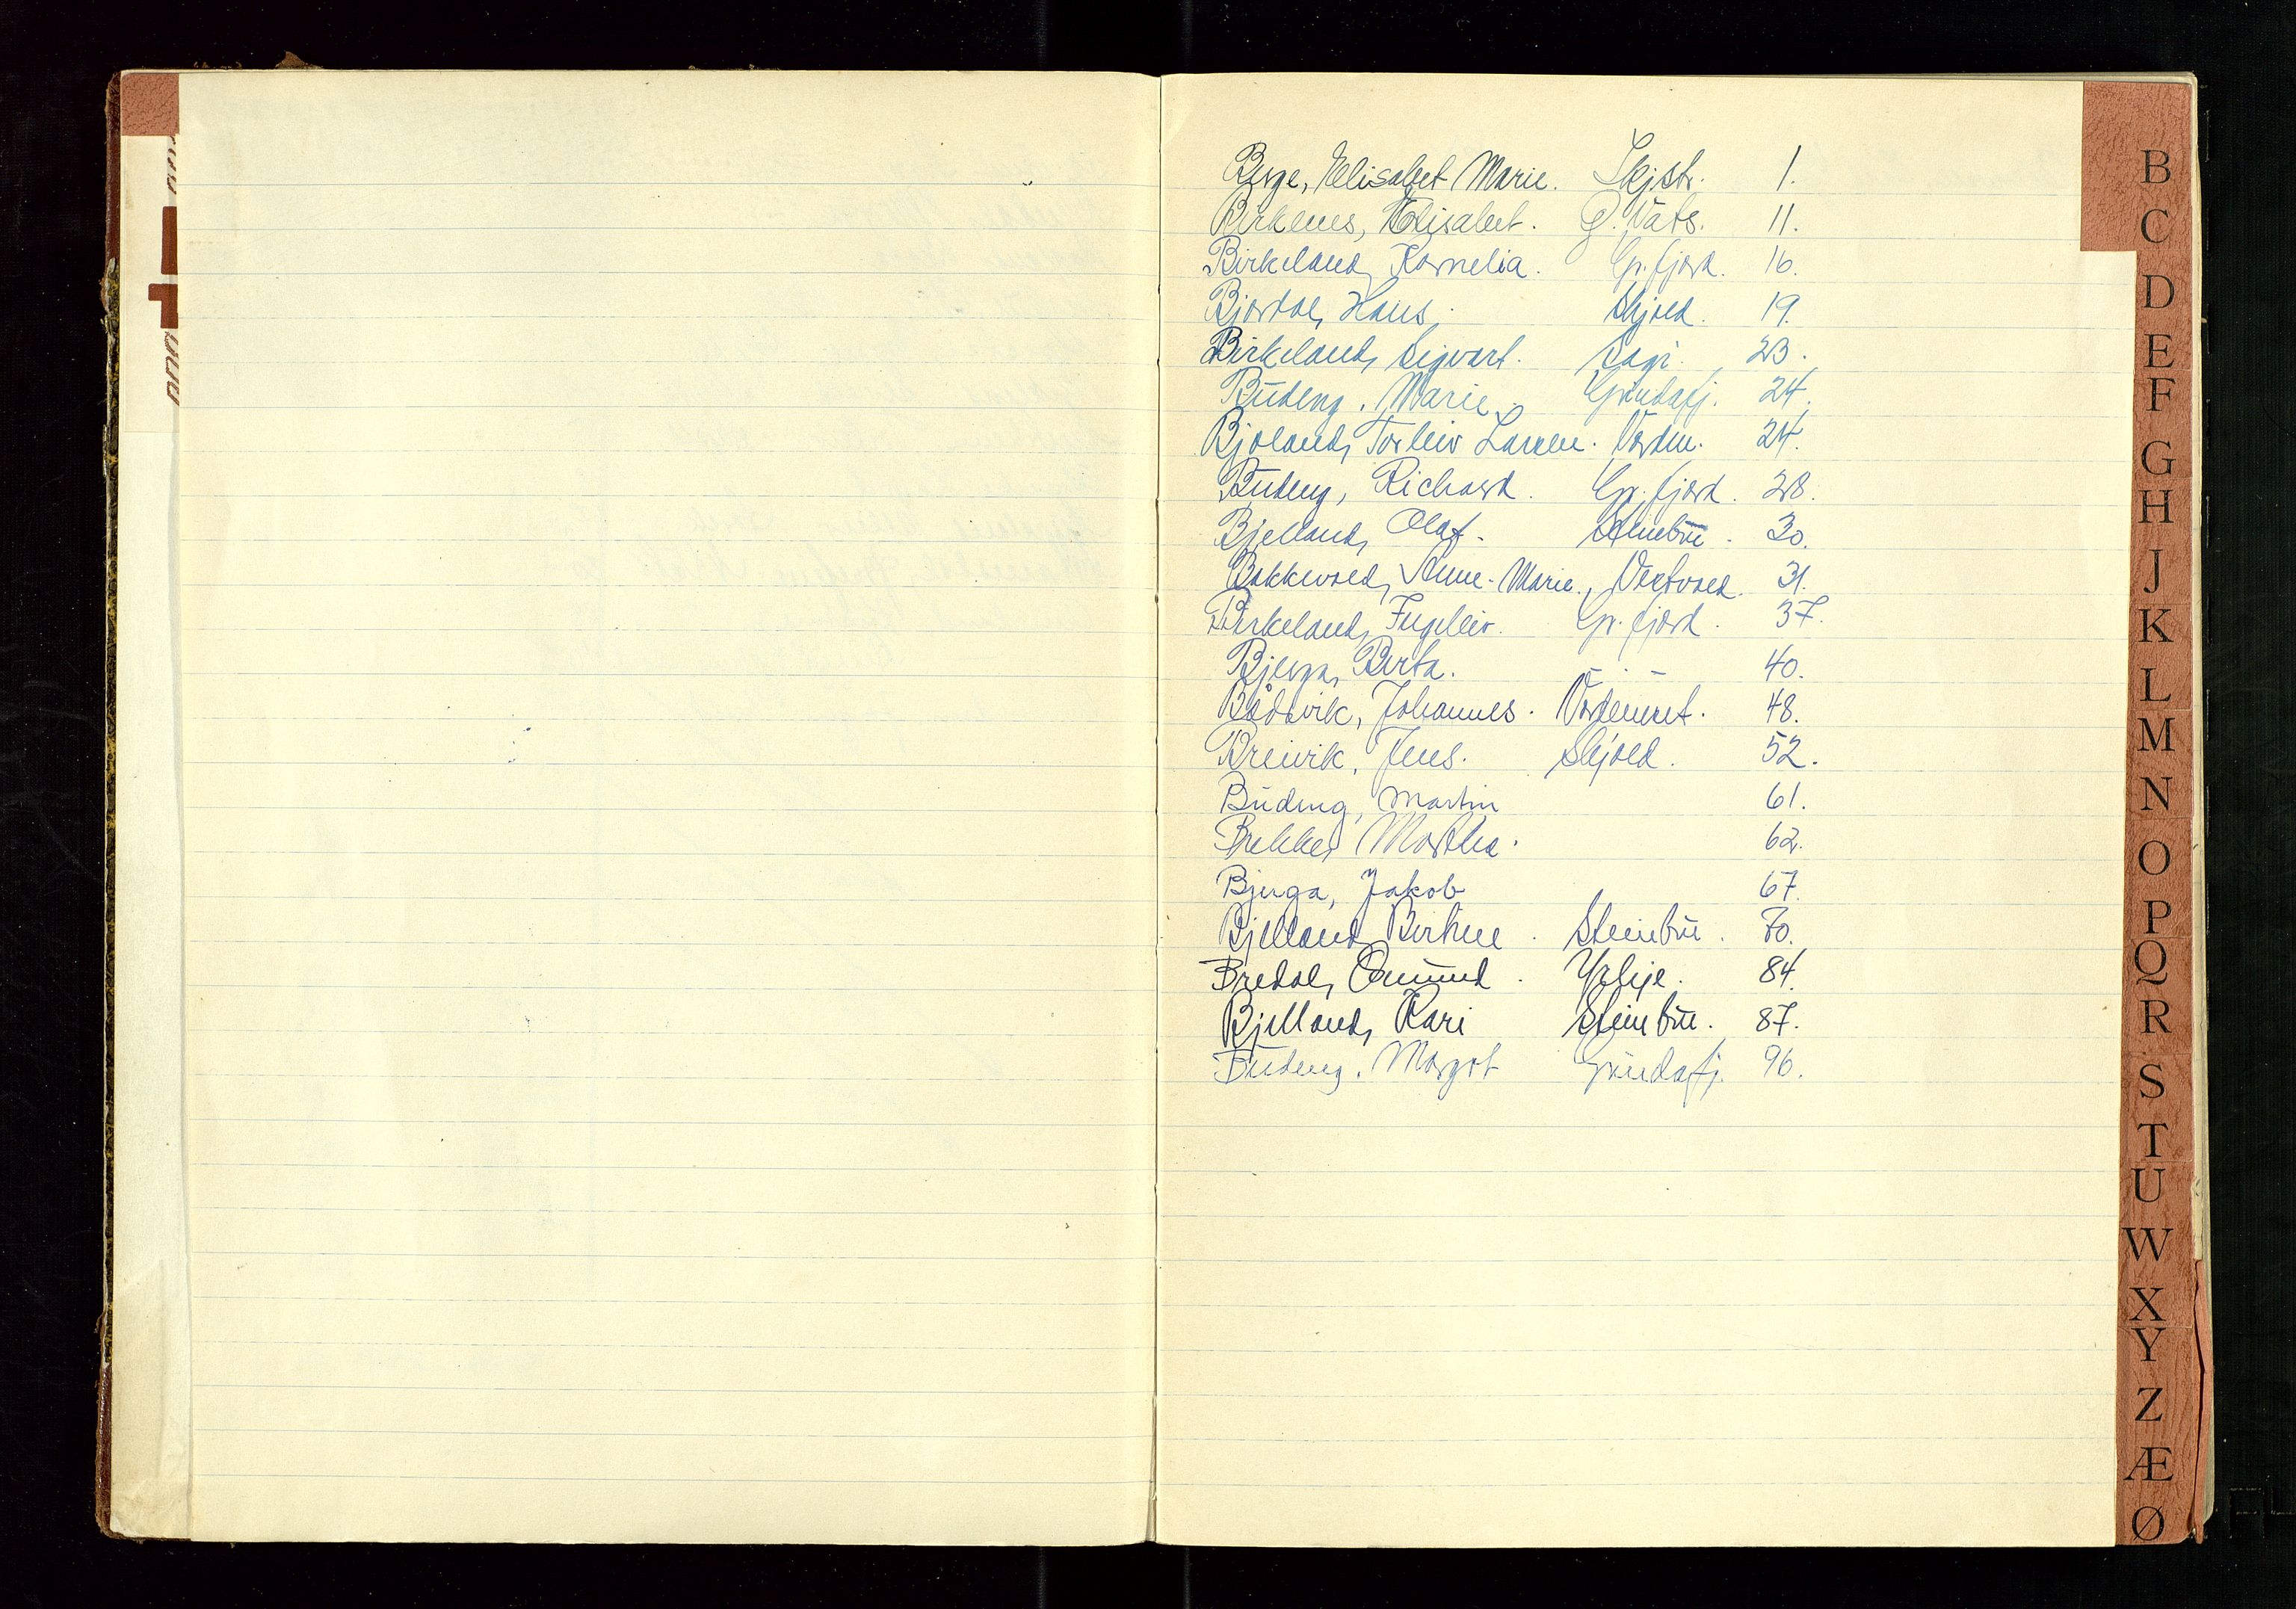 Berge, Elisabet Marie. Skjstr. 1.
Birkenes, Elisabet. Ø. Vats. 11.
Birkeland, Kornelia. Gr. fjord. 16.
Bjordal, Hans. Skjold. 19.
Birkeland, Sigvart. 23.
Budeng. Marie. Grindafj. 24.
Bjoland, Torleiv Larsen. 24.
Budeng, Richard. Gr. fjord. 28.
Bjelland, Olaf. Steinbru. 30.
Bakkevold, Anne-Marie. 31.
Birkeland, Ingleiv. Gr. fjord. 37.
Bjerga, Berta. - . - 40.
Bådsvik, Johannes. Vordeneset. 48.
Breivik, Jens. Skjold. 52.
Budeng, Martin 61.
Brekke, Martha. 62.
Bjerga, Jakob 67.
Bjelland, Birthe. Steinbru. 70.
Bredal, Omund. Yrkje. 84.
Bjelland, Kari Steinbru. 87.
Budeng. Margot Grindafj. 96.
B
C
D
E
F
G
H
J
K
L
M
N
O
P
Q
R
S
T
U
W
X
Y
Z
Æ
Ø